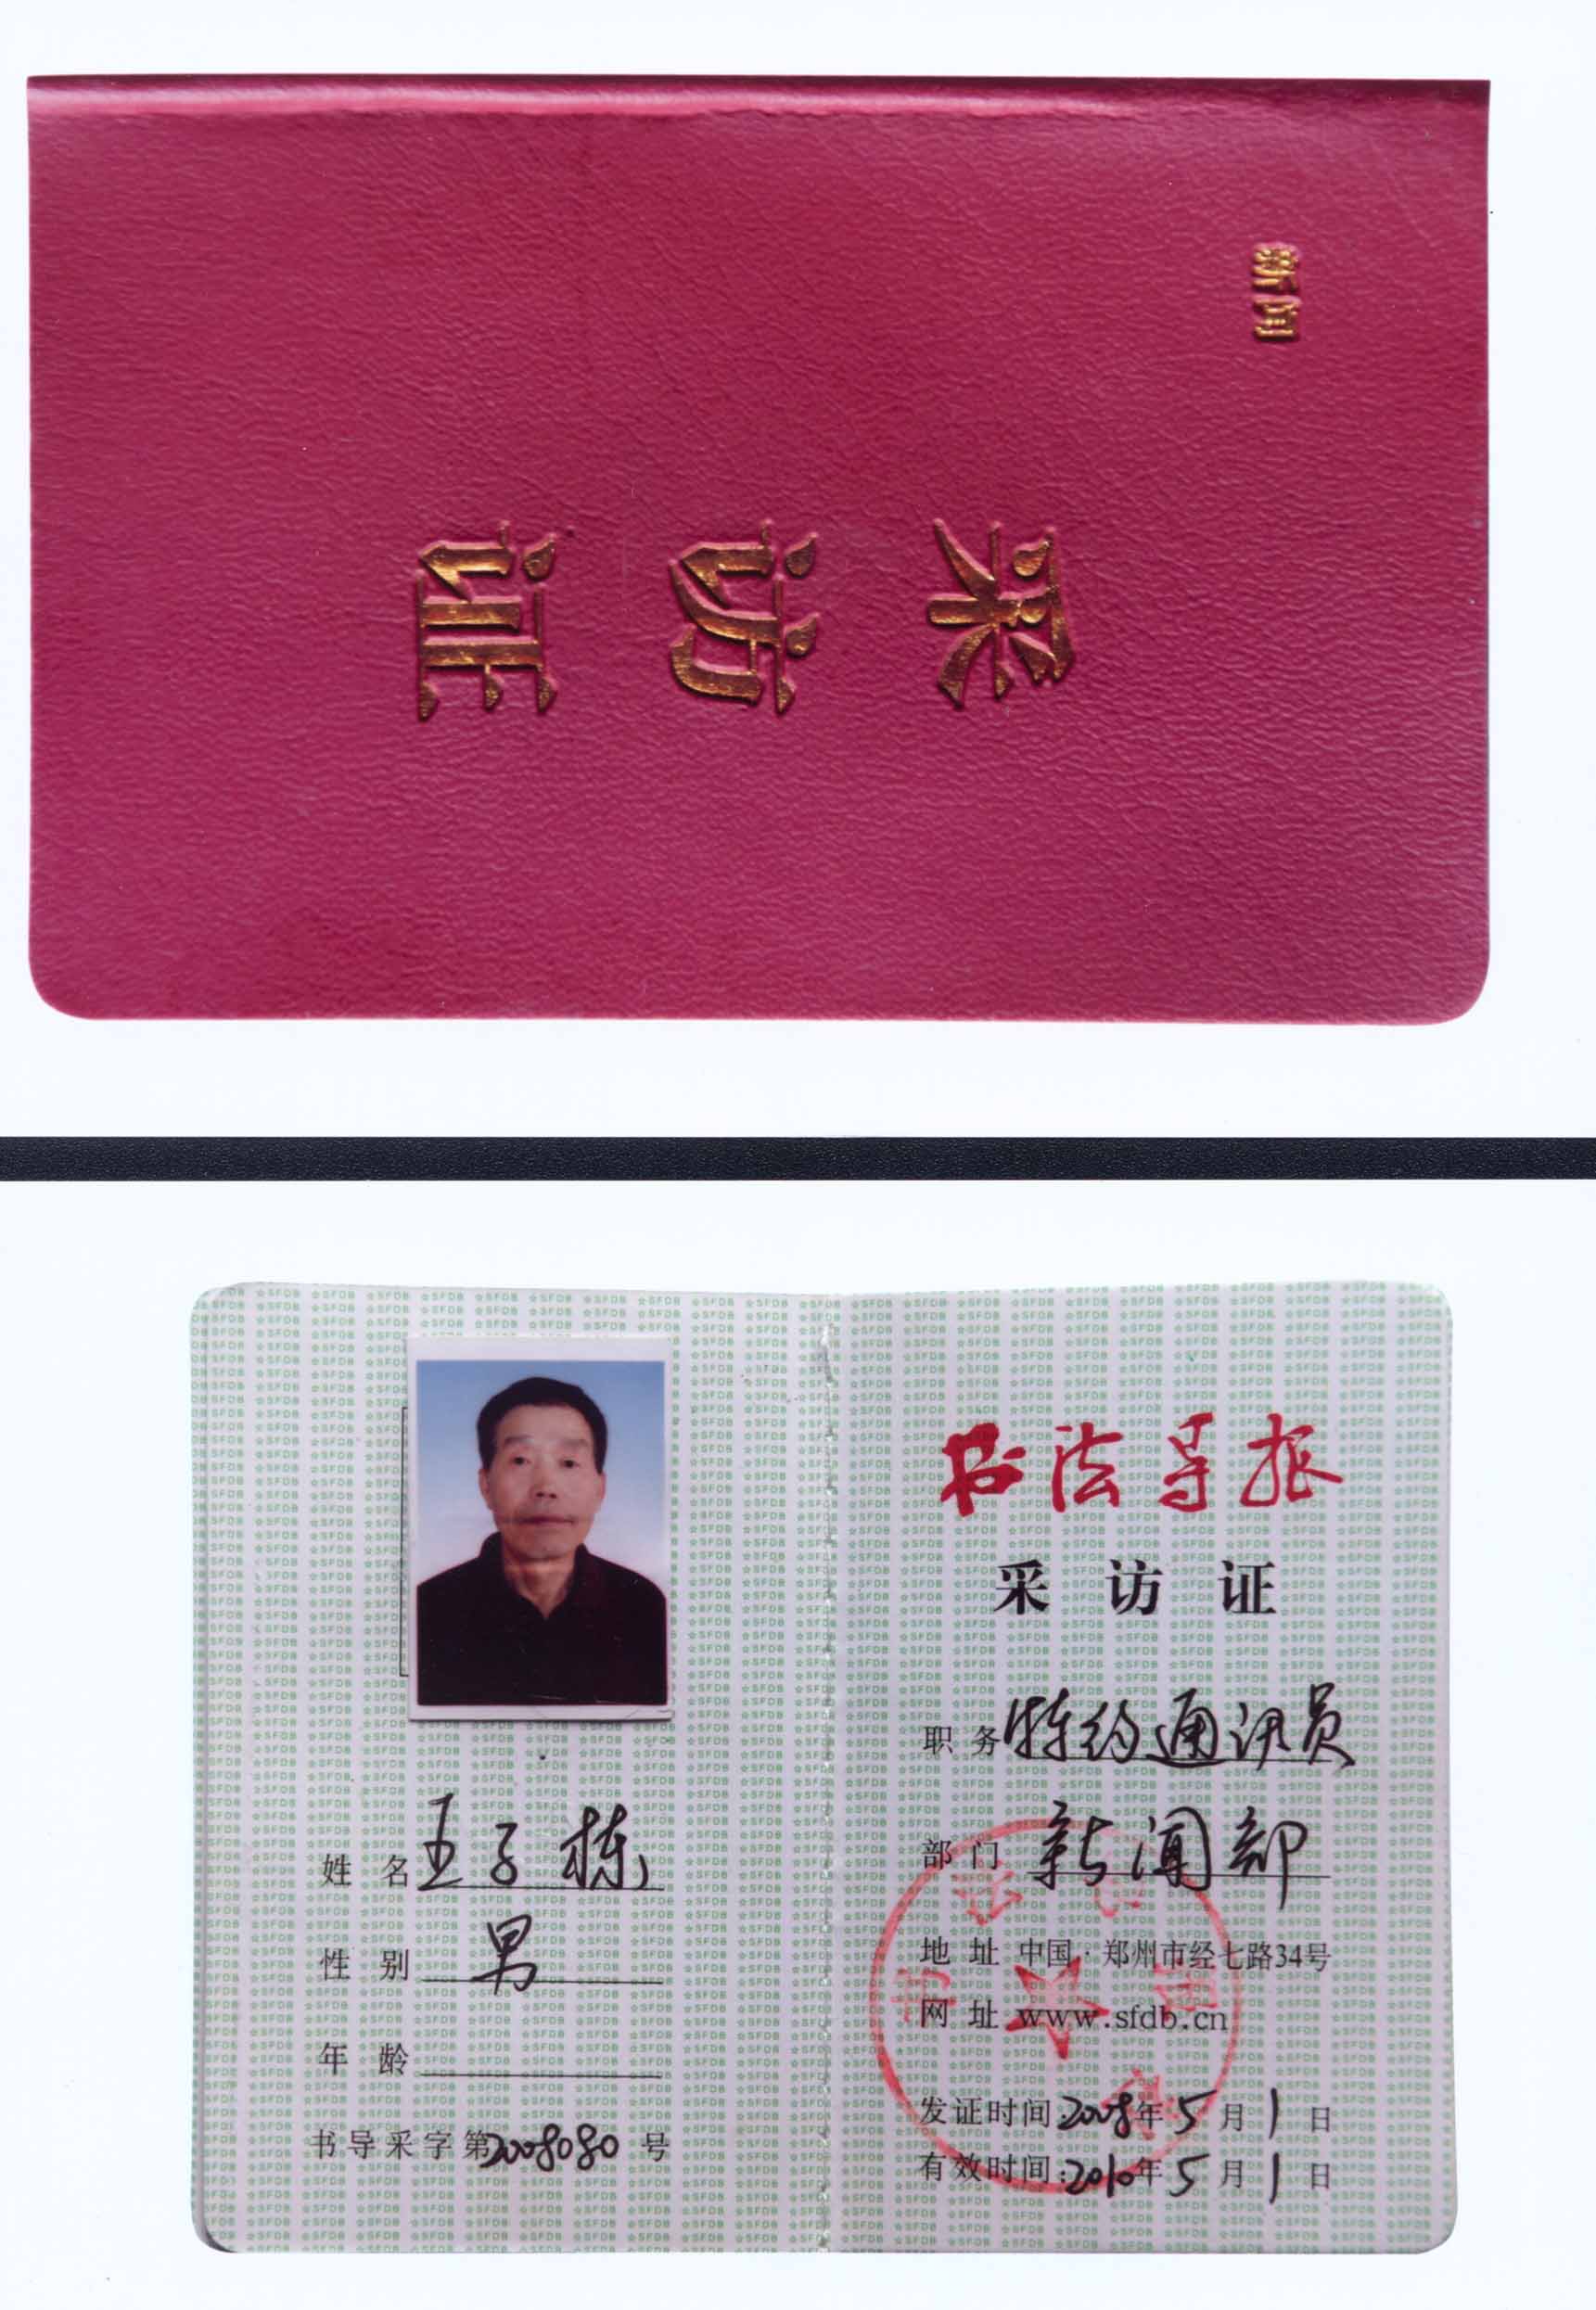 新闻
采访证
姓 名 王子栋
性 别 男
年 龄
书导采字第2008080号
书法导报
采访证
职 务 特约通讯员
部 门 新闻部
地 址 中国·郑州市经七路34号
网 址 www.sfdb.cn
发证时间:2008年5月1日
有效时间:2010年5月1日
☆SFDB